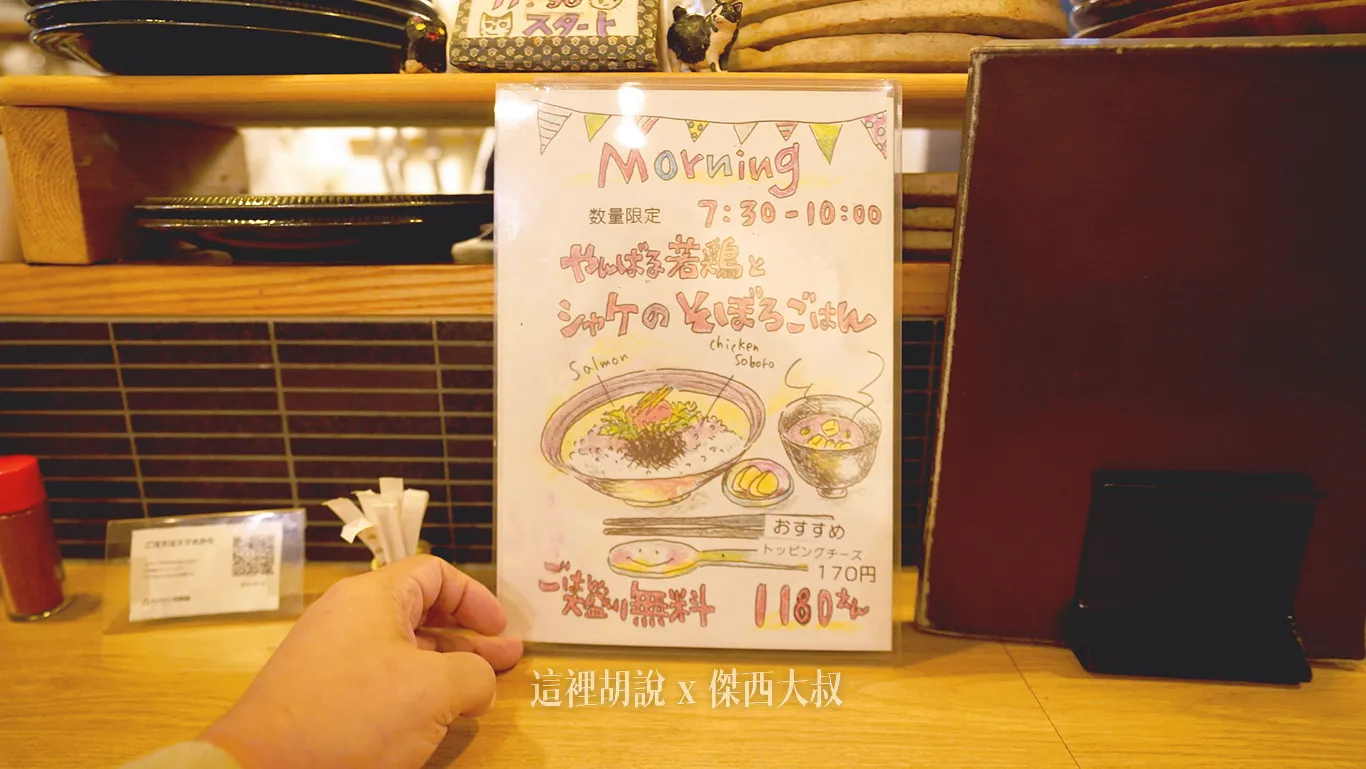 スタート
Morning
数量限定 7:30-10:00
やんばる若鶏と
シャケのそぼろごはん
Salmon
chicken
Soboro
おすすめ
トッピングチーズ
170円
ごはん
大盛り無料 1180えん
這裡胡說 x 傑西大叔